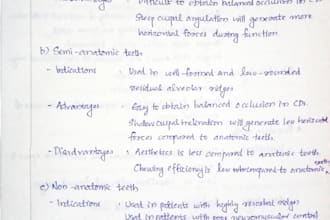 Difficult to obtain balanced occlusion in CD.
Steep cuspal angulation will generate more
horizontal forces during function.
b) Semi-anatomic teeth
- Indications : Used in well-formed and low-rounded
residual alveolar ridges
- Advantages : Easy to obtain balanced occlusion in CD.
Shallow cuspal inclination will generate less horizontal
forces compared to anatomic teeth.
- Disadvantages : Aesthetics is less compared to anatomic teeth.
Chewing efficiency is low compared to anatomic teeth
c) Non-anatomic teeth
- Indications : Used in patients with highly resorbed ridges
Used in patients with poor neuromuscular control